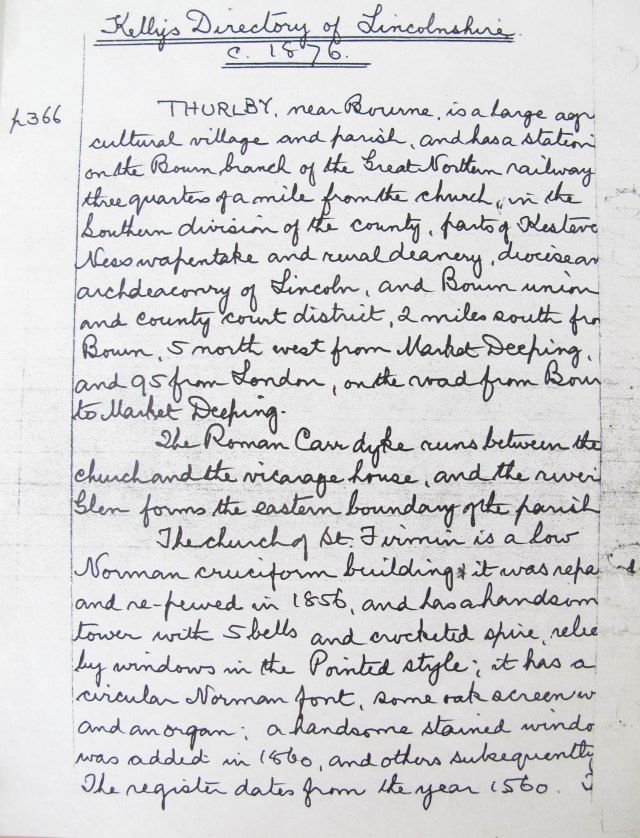 Kelly's Directory of Lincolnshire.
c. 1876.
p366
THURLBY, near Bourne, is a large agr
cultural village and parish, and has a station
on the Bourn branch of the Great Northern railway
three quarters of a mile from the church, in the
Southern division of the county, parts of Kesteve
Ness wapentake and rural deanery, diocese an
archdeaconry of Lincoln, and Bourn union
and county court district, 2 miles south fro
Bourn, 5 north west from Market Deeping,
and 95 from London, on the road from Bour
to Market Deeping.
The Roman Carr dyke runs between the
church and the vicarage house, and the river
Glen forms the eastern boundary of the parish
The church of St. Firmin is a low
Norman cruciform building; it was repa
and re-pewed in 1856, and has a handsom
tower with 5 bells and crocketed spire, relie
by windows in the Pointed style; it has a
circular Norman font, some oak screen w
and an organ; a handsome stained windo
was added in 1860, and others subsequently
The register dates from the year 1560.